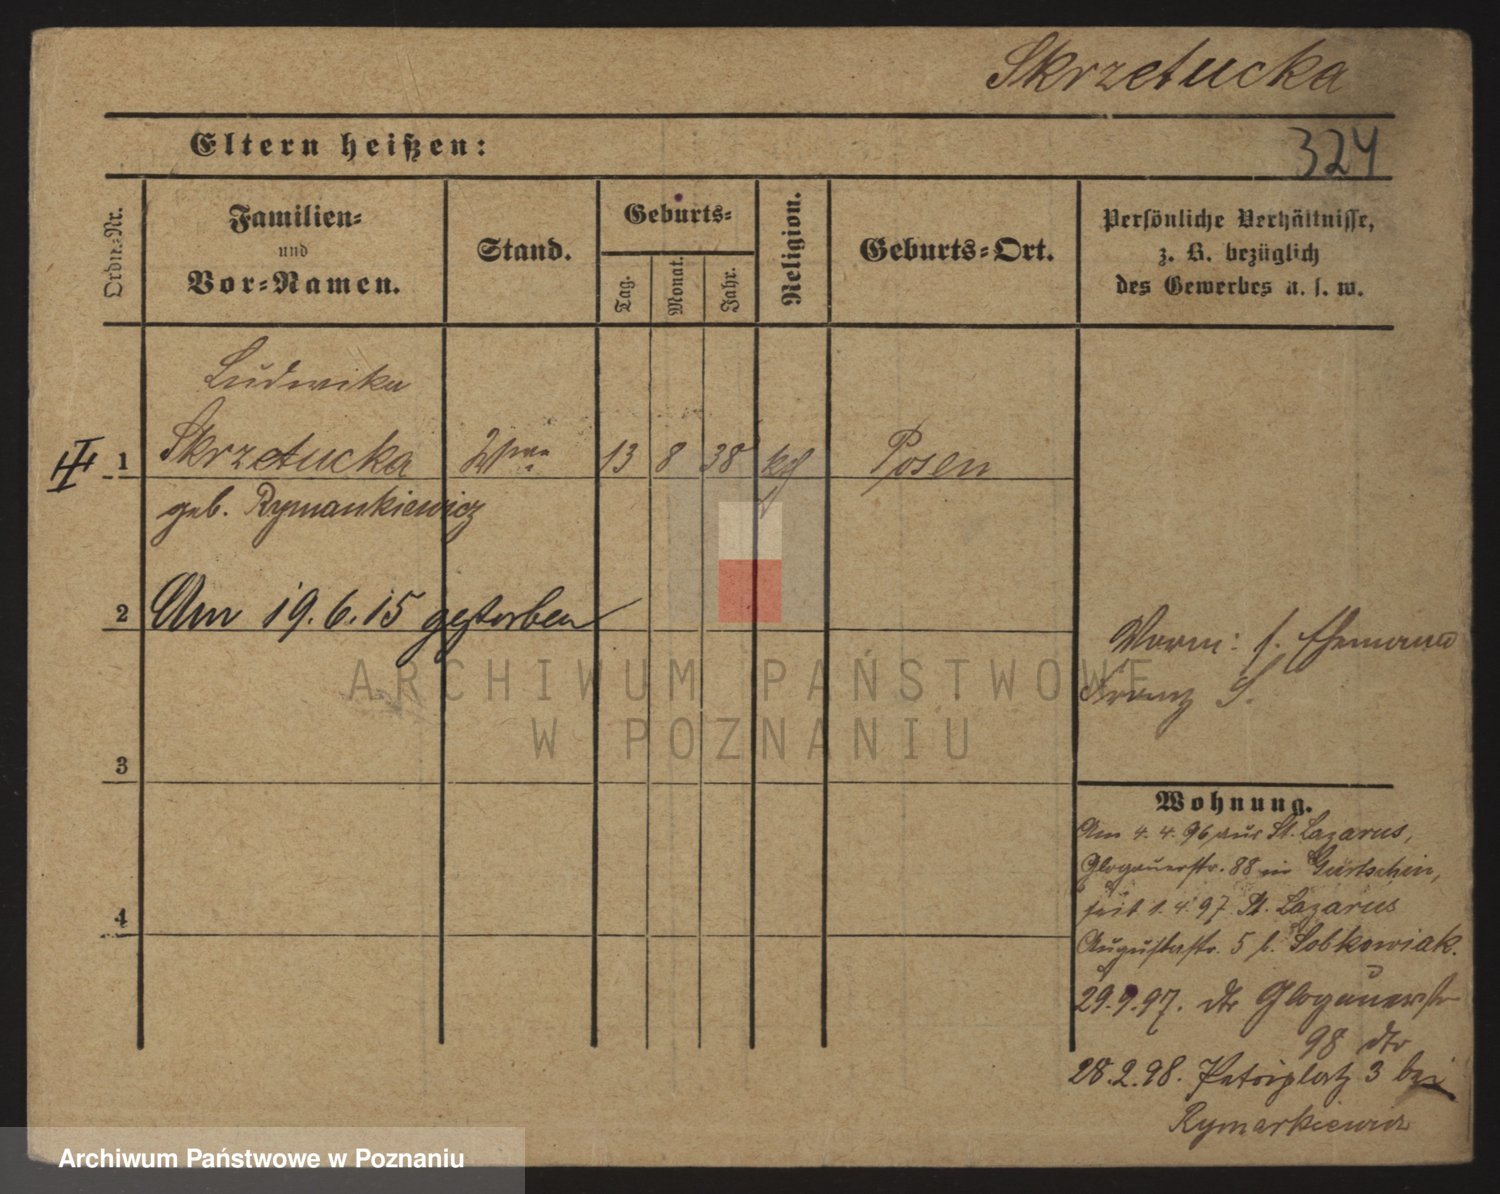 Skrzetucka
Eltern heißen:
324
Ordn.=Nr.
Familien=
und
Vor=Namen.
Stand.
Geburts=
Tag.
Monat.
Jahr.
Religion.
Geburts=Ort.
Persönliche Verhältnisse,
z. B. bezüglich
des Gewerbes u. s. w.
Ludwika
1 Skrzetucka Wwe 13 8 38 kth Posen
geb. Rymarkiewicz
2 Am 19.6.15 gestorben
Vorm: s. Ehemann
Franz S.
ARCHIWUM PAŃSTWOWE
W POZNANIU
3
Wohnung.
Am 4. 4. 96 aus St. Lazarus,
Glogauerstr. 88 in Gurtschin,
seit 1. 4. 97 St. Lazarus
Augustastr. 5 b. Sobkowiak.
4
29.9.97. dto Glogauerstr
98 dto
28.2.98. Petriplatz 3 bei
Rymarkiewicz
Archiwum Państwowe w Poznaniu